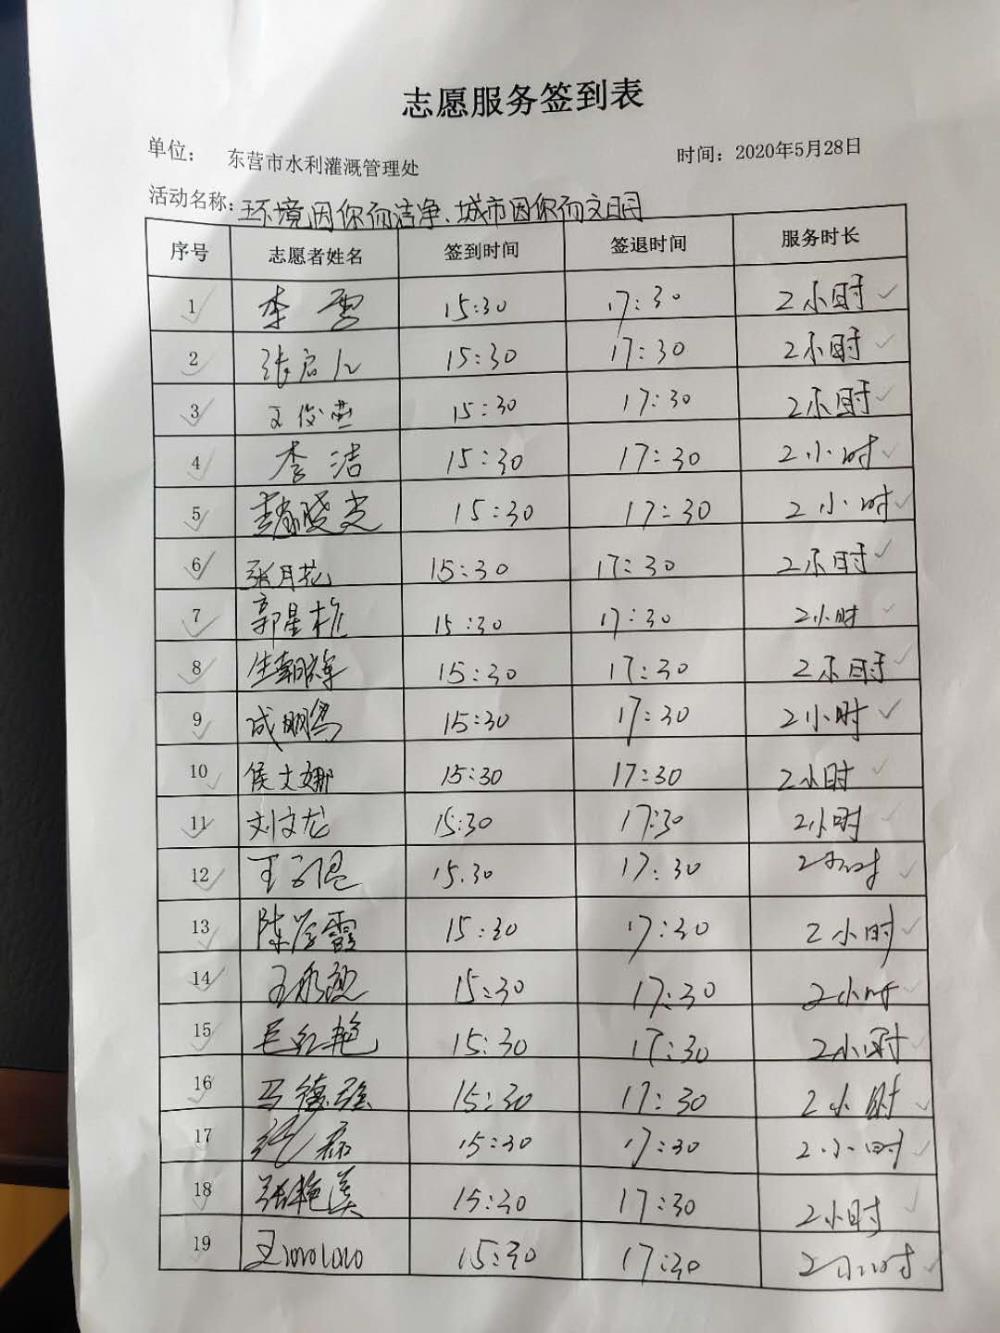 志愿服务签到表
单位： 东营市水利灌溉管理处 时间：2020年5月28日
活动名称：环境因你而洁净、城市因你而文明
序号 志愿者姓名 签到时间 签退时间 服务时长
1 李雪 15:30 17:30 2小时
2 张启 15:30 17:30 2小时
3 王俊燕 15:30 17:30 2小时
4 李洁 15:30 17:30 2小时
5 晓 15:30 17:30 2小时
6 张月花 15:30 17:30 2小时
7 郭星 15:30 17:30 2小时
8 生朝 15:30 17:30 2小时
9 成鹏 15:30 17:30 2小时
10 侯文娜 15:30 17:30 2小时
11 刘文龙 15:30 17:30 2小时
12 王 15:30 17:30 2小时
13 陈学霞 15:30 17:30 2小时
14 王 15:30 17:30 2小时
15 毛红艳 15:30 17:30 2小时
16 马德 15:30 17:30 2小时
17 磊 15:30 17:30 2小时
18 张艳美 15:30 17:30 2小时
19 王 15:30 17:30 2小时